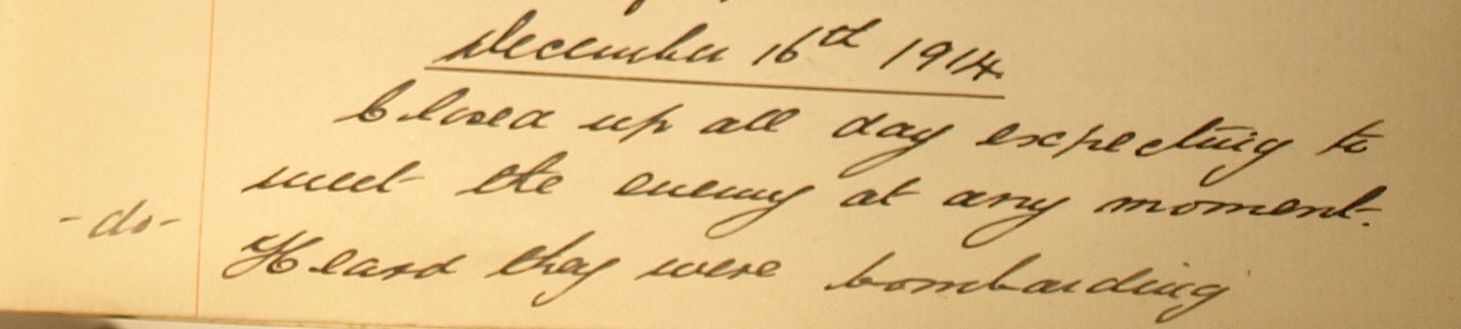 December 16th 1914.
Closed up all day expecting to
meet the enemy at any moment.
-do-
Heard they were bombarding